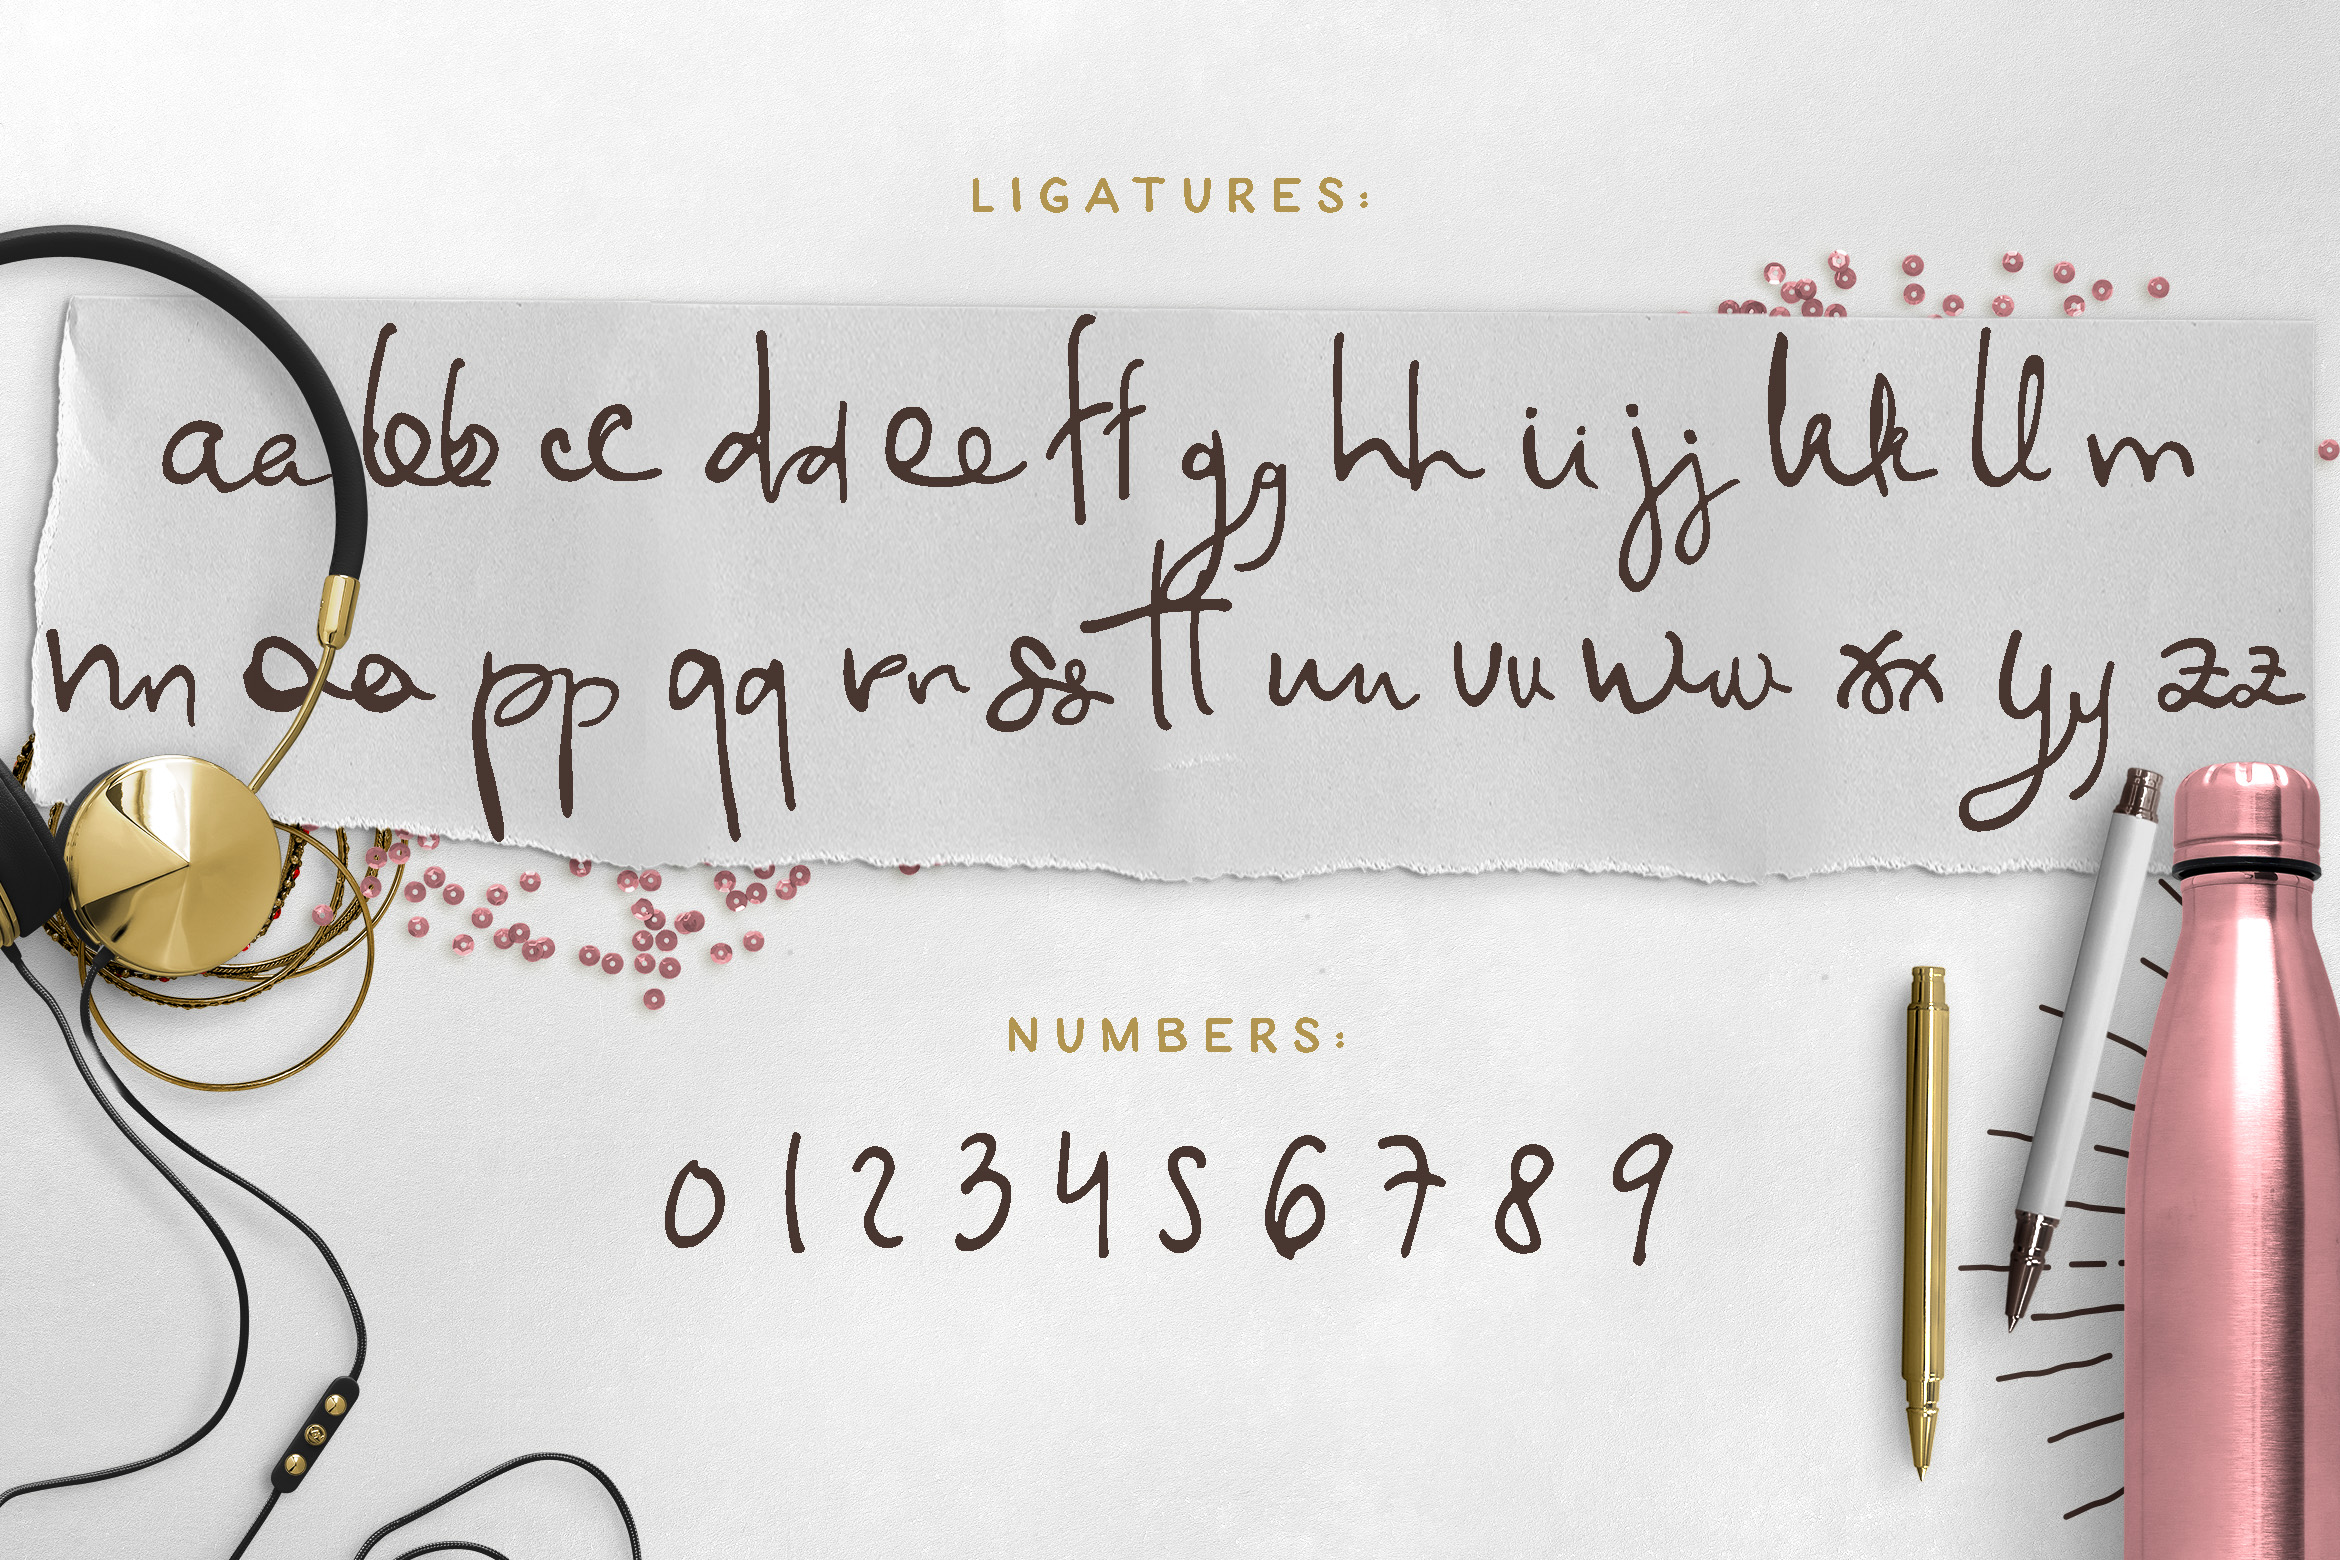 LIGATURES:
aa bb cc dd ee ff gg hh ii jj kk ll m
nn oo pp qq rr ss tt uu vv ww xx yy zz
NUMBERS:
0 1 2 3 4 5 6 7 8 9